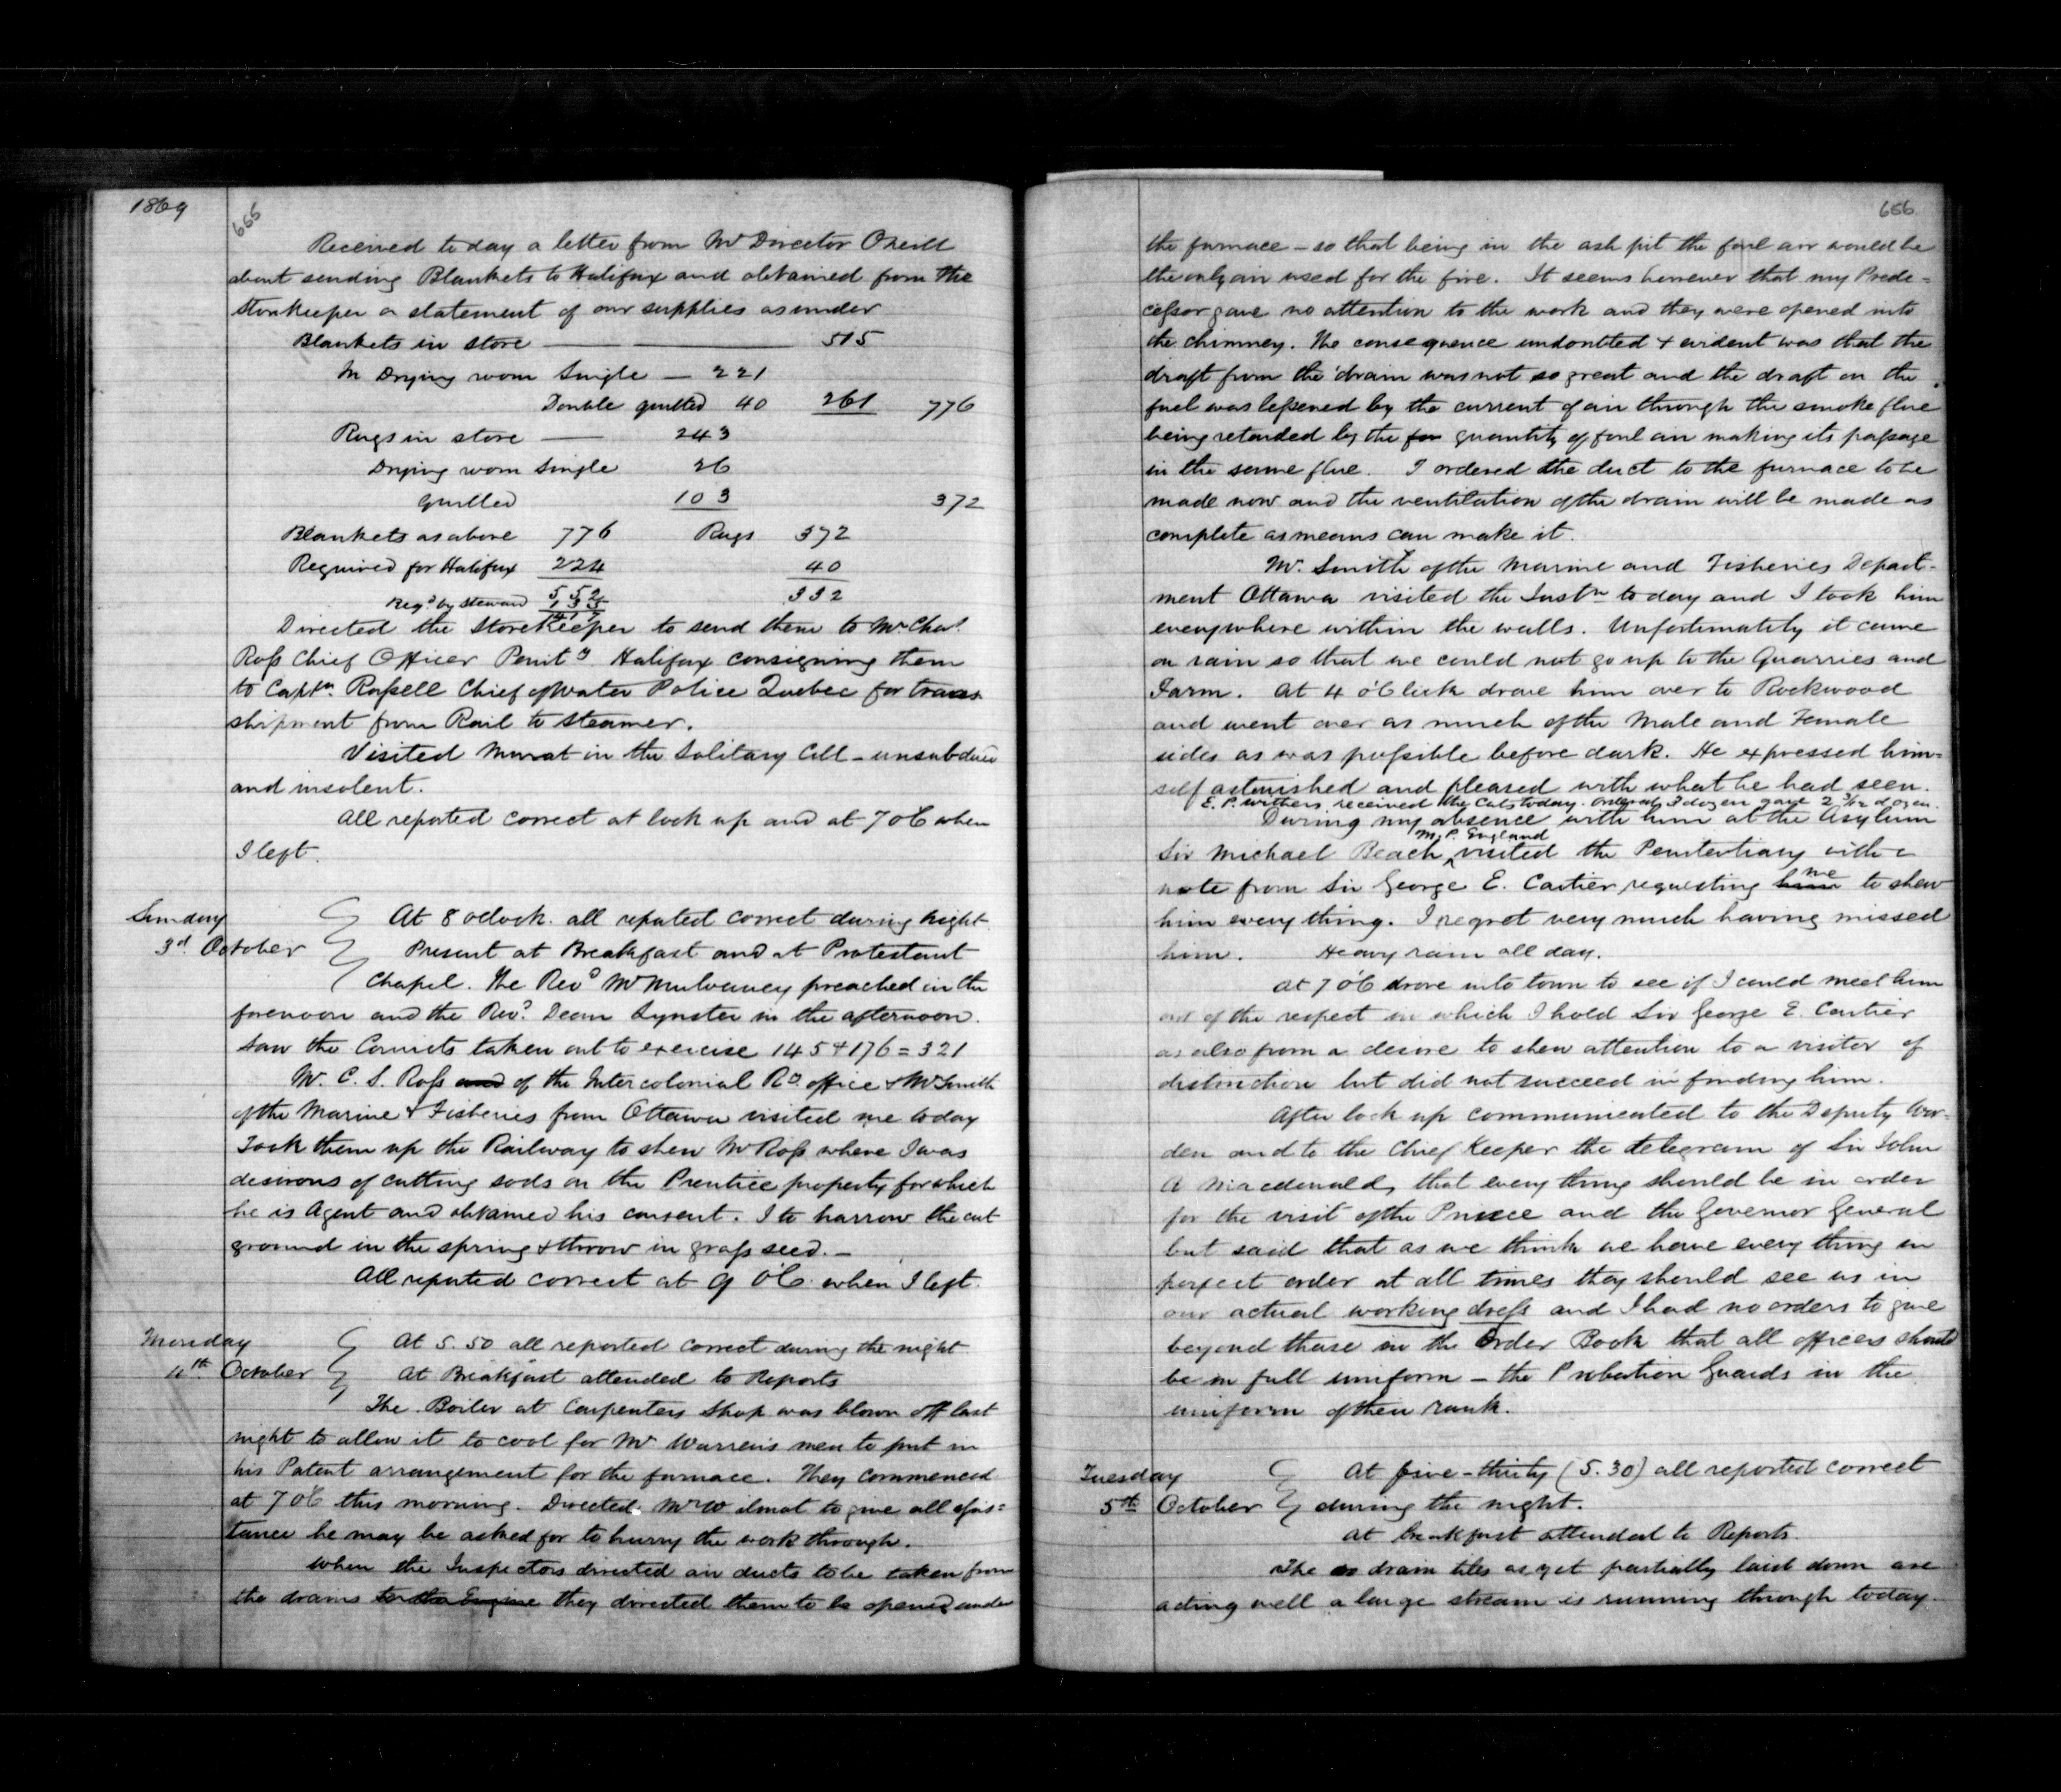 1869
655
Received to day a letter from Mr Director Oneill
about sending Blankets to Halifax and obtained from the
Storekeeper a statement of our supplies as under
Blankets in store — — 515
In Drying room Single — 221
Double quilted 40 261 776
Rugs in store — 243
Drying room Single 26
Quilted 103 372
Blankets as above 776 Rugs 372
Required for Halifax 224 40
552 332
Reqd by Steward 135
417
Directed the Storekeeper to send them to Mr Chas.
Ross Chief Officer Penity Halifax consigning them
to Captn. Russell Chief of Water Police Quebec for trans
shipment from Rail to Steamer.
Visited Murat in the Solitary Cell – unsubdued
and insolent.
All reported correct at lock up and at 7 o'C when
I left.
Sunday At 8 oclock. all reported correct during night.
3d. October Present at Breakfast and at Protestant
Chapel. The Revd Mr Mulvaney preached in the
forenoon and the Revd. Dean Lynster in the afternoon.
Saw the Convicts taken out to exercise 145 + 176 = 321
Mr. C. S. Ross and of the Intercolonial Rd. office & Mr Smith
of the Marine & Fisheries from Ottawa visited me today
Took them up the Railway to shew Mr Ross where I was
desirous of cutting sods on the Prentice property for which
he is Agent and obtained his consent. I to harrow the cut
ground in the spring & throw in grass seed. –
All reported correct at 9 o'C. when I left.
Monday At 5.50 all reported correct during the night
4th. October At Breakfast attended to Reports
The Boiler at Carpenters Shop was blown off last
night to allow it to cool for Mr Warren's men to put in
his Patent arrangement for the furnace. They commenced
at 7 o'C this morning. Directed Mr Wilmot to give all assis=
tance he may be asked for to hurry the work through.
When the Inspectors directed air ducts to be taken from
the drains to the Engine they directed them to be opened under
656
the furnace – so that being in the ash pit the foul air would be
the only air used for the fire. It seems however that my Prede=
cessor gave no attention to the work and they were opened into
the chimney. The consequence undoubted & evident was that the
draft from the drain was not so great and the draft on the
fuel was lessened by the current of air through the smoke flue
being retarded by the for quantity of foul air making its passage
in the same flue. I ordered the duct to the furnace to be
made now and the ventilation of the drain will be made as
complete as means can make it.
Mr. Smith of the Marine and Fisheries Depart-
ment Ottawa visited the Instn to day and I took him
everywhere within the walls. Unfortunately it came
on rain so that we could not go up to the Quarries and
Farm. At 4 o'Clock drove him over to Rockwood
and went over as much of the Male and Female
sides as was possible before dark. He expressed him=
self astonished and pleased with what he had seen.
E. P. Withers received the Cats today. Ordered 3 dozen gave 2 3/12 dozen.
During my absence with him at the Asylum
M. P. England
Sir Michael Beach, visited the Penitentiary with a
note from Sir George E. Cartier requesting him me to shew
him every thing. I regret very much having missed
him. Heavy rain all day.
At 7 o'C drove into town to see if I could meet him
out of the respect in which I hold Sir George E. Cartier
as also from a desire to shew attention to a visitor of
distinction but did not succeed in finding him.
After lock up communicated to the Deputy War-
den and to the Chief Keeper the telegram of Sir John
A Macdonald, that every thing should be in order
for the visit of the Prince and the Governor General
but said that as we think we have every thing in
perfect order at all times they should see us in
our actual working dress and I had no orders to give
beyond those in the Order Book that all officers should
be in full uniform – the Probation Guards in the
uniform of their rank.
Tuesday At five-thirty (5.30) all reported correct
5th October during the night.
At breakfast attended to Reports.
The drain tiles as yet partially laid down are
acting well a large stream is running through today.